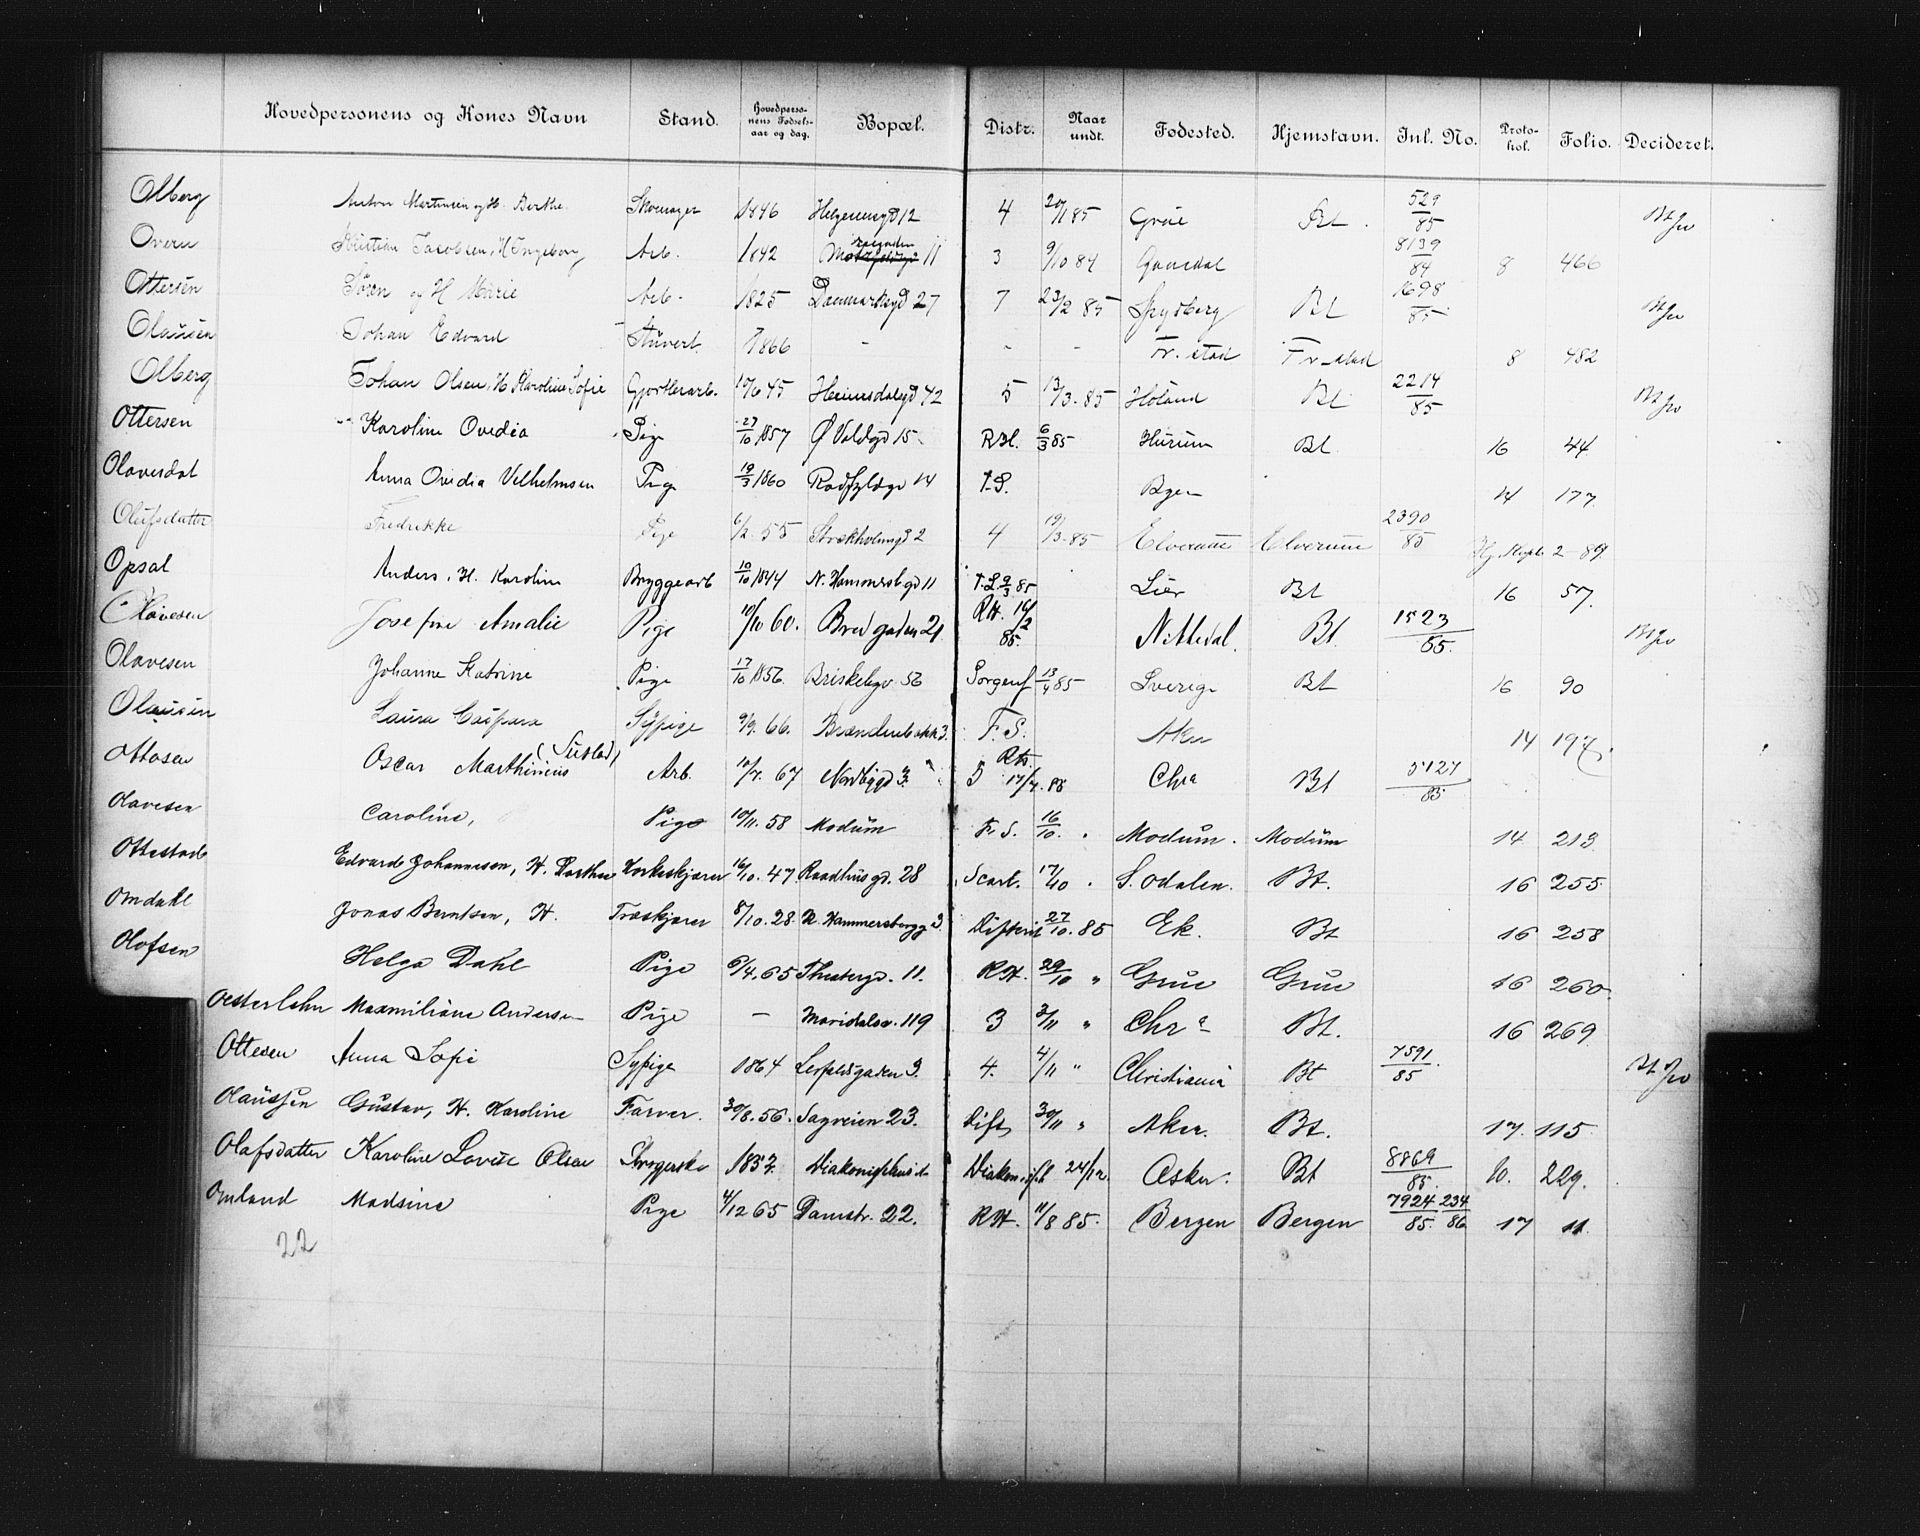 Hovedpersonens og Kones Navn Stand. Hovedperso-nens Fødsels-aar og dag. Bopæl. Distr. Naar undt. Fødested. Hjemstavn. Inl. No. Proto-kol. Folio. Decideret.
Olberg Anton Martinsen og H. Berthe Skomager 1846 Helgesensgd 12 4 20/11 85 Grue Bt. 529/85 Bt
Overn Kristian Jacobsen, H Ingeborg Arb. 1842 11 3 9/10 84 Gausdal 8139/84 8 466
Ottersen Søren og H Marie Arb. 1825 Danmarksgd 27 7 23/2 85 Spydberg Bt 1698/85 Bt
Olaussen Johan Edvard Stuvert 1866 - - - Fr. stad Fr. stad 8 482
Olberg Johan Olsen, H Karoline Sofie Gjørtlerarb. 10/6 45 Heimdalsgd 42 5 13/3. 85 Høland Bt 2214/85 Bt
Ottersen Karoline Ovedia Pige 27/10 1857 Ø Voldgd 15 R.H. 6/3 85 Hurum Bt 16 44
Olavesdat Anna Ovidia Vilhelmsen Pige 19/3 1860 Raadhusgt 14 F.S. Byen 14 177
Olufsdatter Fredrikke Pige 6/2. 55 Stockholmsgd 2 4 19/3. 85 Elverum Elverum 2390/85 2 89
Opsal Anders, H. Karoline Bryggearb 10/10 1844 N. Hammersb gd 11 F.S. 9/3 85 Lier Bt 16 57.
Olavesen Josefine Amalie Pige 10/10 60. Bredgaden 21 R.H. 16/2 85. Nittedal. Bt. 1523/85. Bt
Olavesen Johanne Katrine Pige 17/10 1856. Briskebyv. 56 Sorgenf 13/4 85 Sverige Bt 16 90
Olaussen Laura Caspara Sypige 9/9. 66. Brænderibakk 3. F.S. Aker 14 197
Ottosen Oscar Marthinius Arb. 10/7. 67 Nordbygd 3. 5 R.H. 17/7. 85 Chra Bt 5127/85
Olavesen Caroline, Pige 10/11. 58 Modum F.S. 16/10. " Modum. Modum 14 213
Ottestad Edvard Johannesen, H. Dorthea Korkeskjærer 16/10. 47 Raadhusgd. 28 Scarl. 17/10 " S. Odalen. Bt. 16 255
Omdahl Jonas Berntsen, H. Træskjærer 8/10. 28. N. Hammersbergg 3. Difterit 27/10. 85 Ek. Bt 16 258
Olofsen Helga Dahl Pige 6/4. 65 Theatergd. 11. R.H. 29/10 " Grue Grue 16 260
Oesterlehn Maxmiliane Andersen Pige - Maridalsv. 119 3 3/11 " Chra Bt. 16 269
Ottesen Anna Sofie Sypige 1864 Leirfaldsgaden 3. 4. 4/11 " Christiania Bt 7591/85 Bt
Olaussen Gustav, H. Karoline Farver. 30/8. 56. Sagveien 23. Dift 30/11 " Aker. Bt. 17. 115
Olafsdatter Karoline Lovise Olsen 1857 24/12 Asker. Bt 8869/85. 10. 229.
Omland Madsine Pige 4/12 65 Damstr. 22. R.H. 11/8 85. Bergen Bergen 7924/85. 234/86 17 11.
22